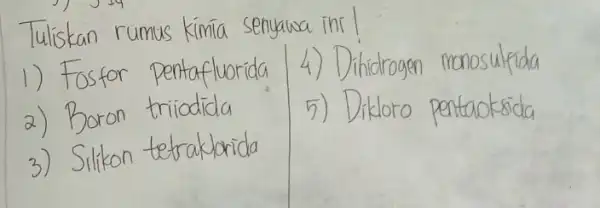 Tuliskan rumus kimia senyawa ini!
1) Fosfor pentafluorida
2) Boron triiodida
3) Silikon tetraklorida
4) Dihidrogen monosulfida
5) Dikloro pentaoksida